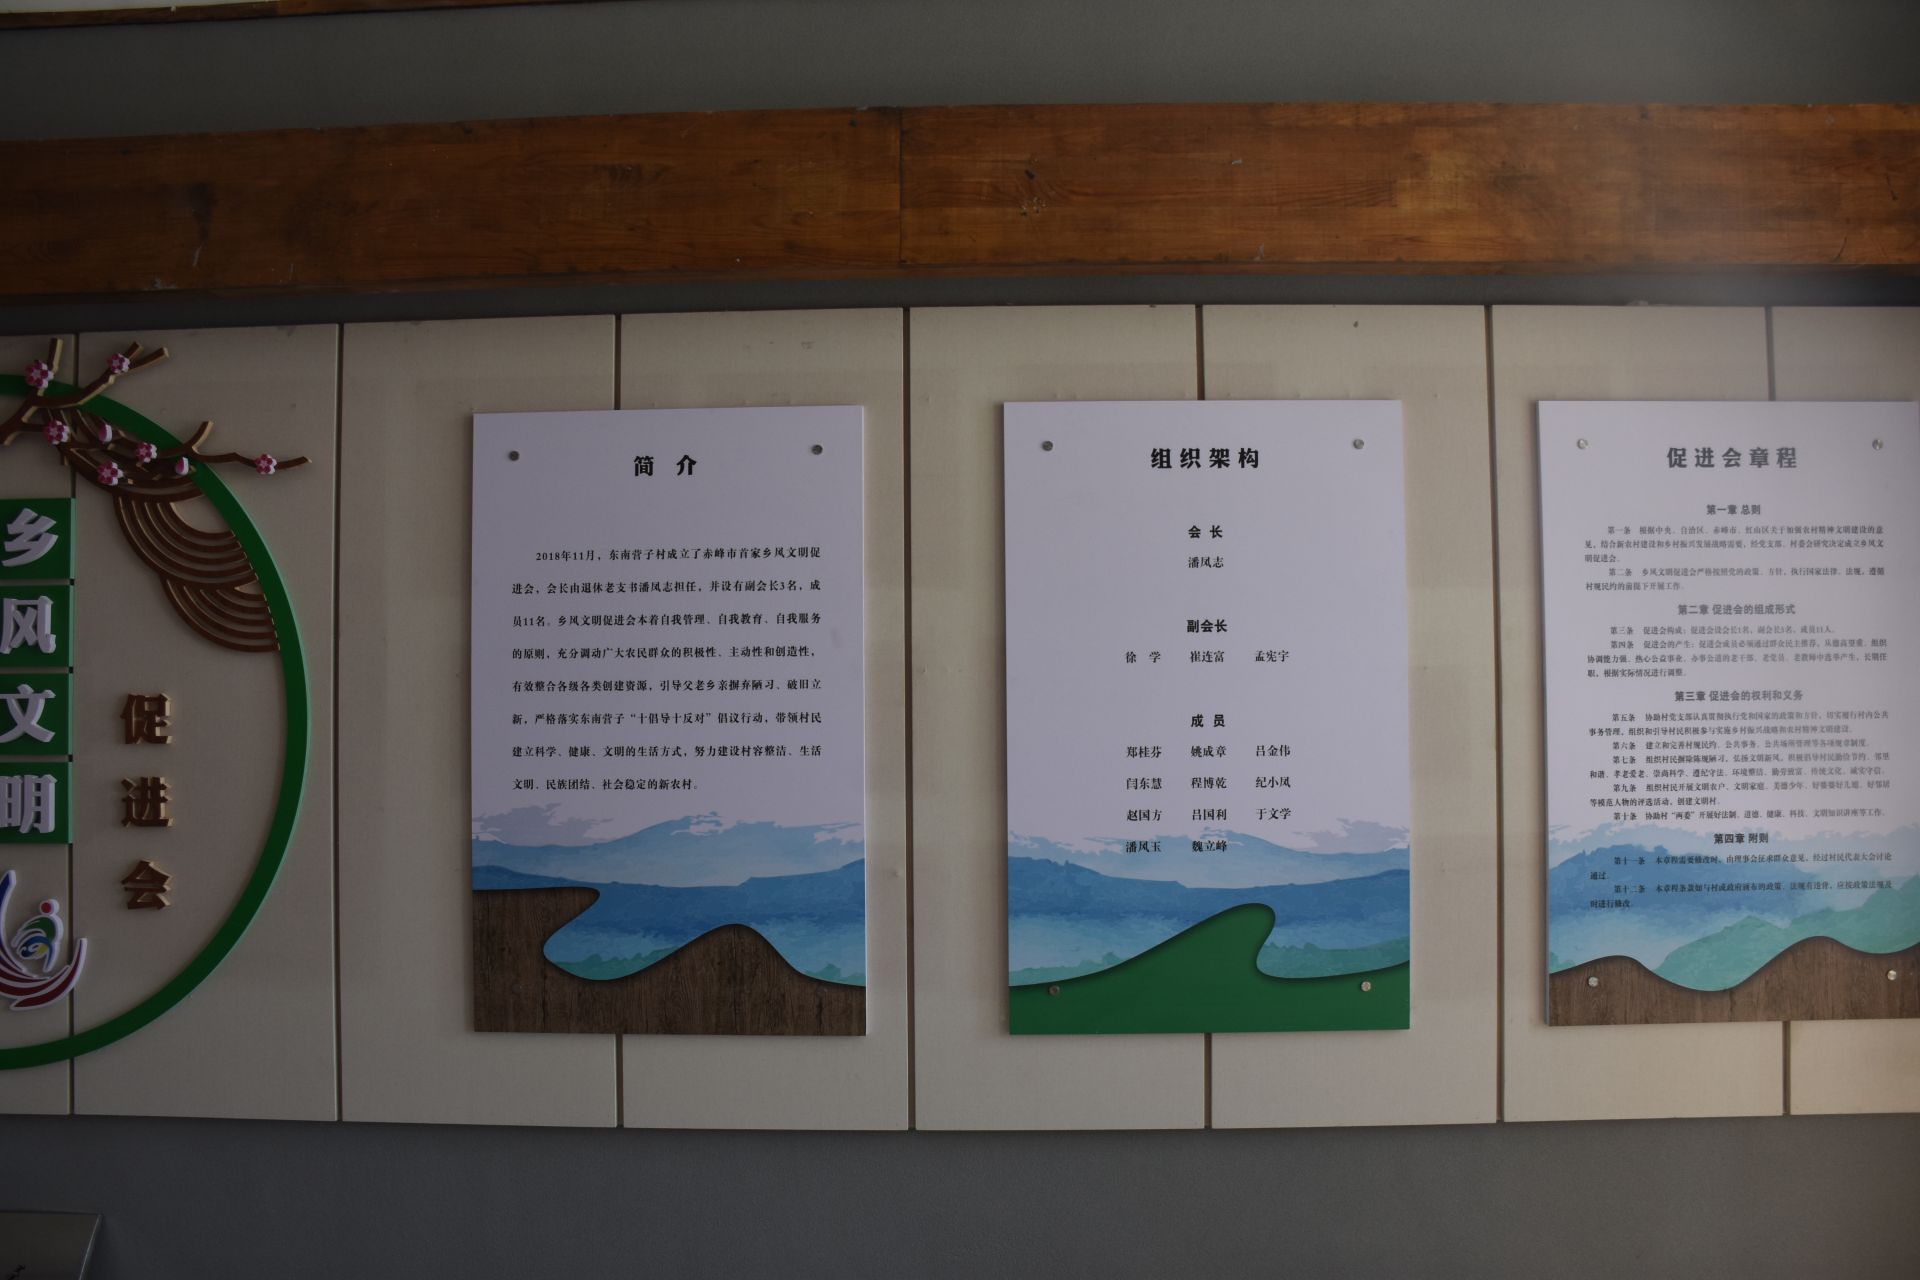 乡风文明
促进会
简 介
2018年11月，东南营子村成立了赤峰市首家乡风文明促
进会，会长由退休老支书潘凤志担任，并设有副会长3名，成
员11名。乡风文明促进会本着自我管理、自我教育、自我服务
的原则，充分调动广大农民群众的积极性、主动性和创造性，
有效整合各级各类创建资源，引导父老乡亲摒弃陋习、破旧立
新，严格落实东南营子“十倡导十反对”倡议行动，带领村民
建立科学、健康、文明的生活方式，努力建设村容整洁、生活
文明、民族团结、社会稳定的新农村。
组织架构
会 长
潘凤志
副会长
徐 学 崔连富 孟宪宇
成 员
郑桂芬 姚成章 吕金伟
闫东慧 程博乾 纪小凤
赵国方 吕国利 于文学
潘凤玉 魏立峰
促进会章程
第一章 总则
第一条 根据中央、自治区、赤峰市、红山区关于加强农村精神文明建设的意
见，结合新农村建设和乡村振兴发展战略需要，经党支部、村委会研究决定成立乡风文
明促进会。
第二条 乡风文明促进会严格按照党的政策、方针，执行国家法律、法规，遵循
村规民约的前提下开展工作。
第二章 促进会的组成形式
第三条 促进会构成：促进会设会长1名，副会长3名，成员11人。
第四条 促进会的产生：促进会成员必须通过群众民主推荐，从德高望重、组织
协调能力强、热心公益事业、办事公道的老干部、老党员、老教师中选举产生，长期任
职，根据实际情况进行调整。
第三章 促进会的权利和义务
第五条 协助村党支部认真贯彻执行党和国家的政策和方针，切实履行村内公共
事务管理，组织和引导村民积极参与实施乡村振兴战略和农村精神文明建设。
第六条 建立和完善村规民约、公共事务、公共场所管理等各项规章制度。
第七条 组织村民摒除陈规陋习，弘扬文明新风，积极倡导村民勤俭节约、邻里
和谐、孝老爱老、崇尚科学、遵纪守法、环境整洁、勤劳致富、传统文化、诚实守信。
第九条 组织村民开展文明农户、文明家庭、美德少年、好婆婆好儿媳、好邻居
等模范人物的评选活动，创建文明村。
第十条 协助村“两委”开展好法制、道德、健康、科技、文明知识讲座等工作。
第四章 附则
第十一条 本章程需要修改时，由理事会征求群众意见，经过村民代表大会讨论
通过。
第十二条 本章程条款如与村或政府颁布的政策、法规有违背，应按政策法规及
时进行修改。